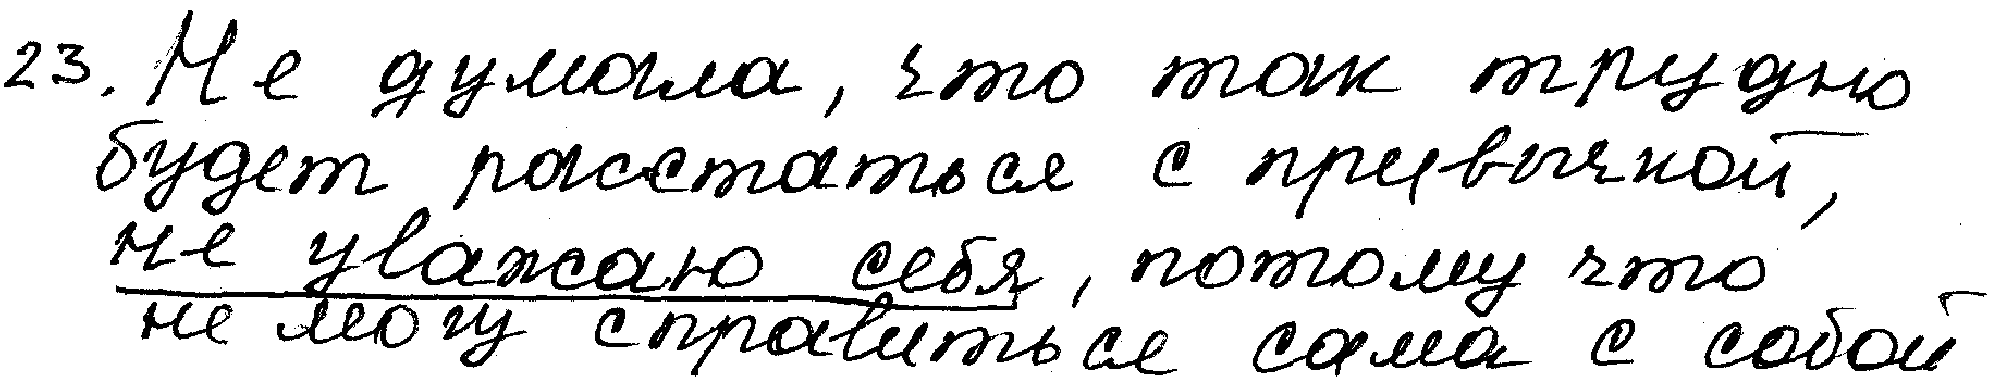 23. Не думала, что так трудно
будет расстаться с привычкой,
не уважаю себя, потому что
не могу справиться сама с собой